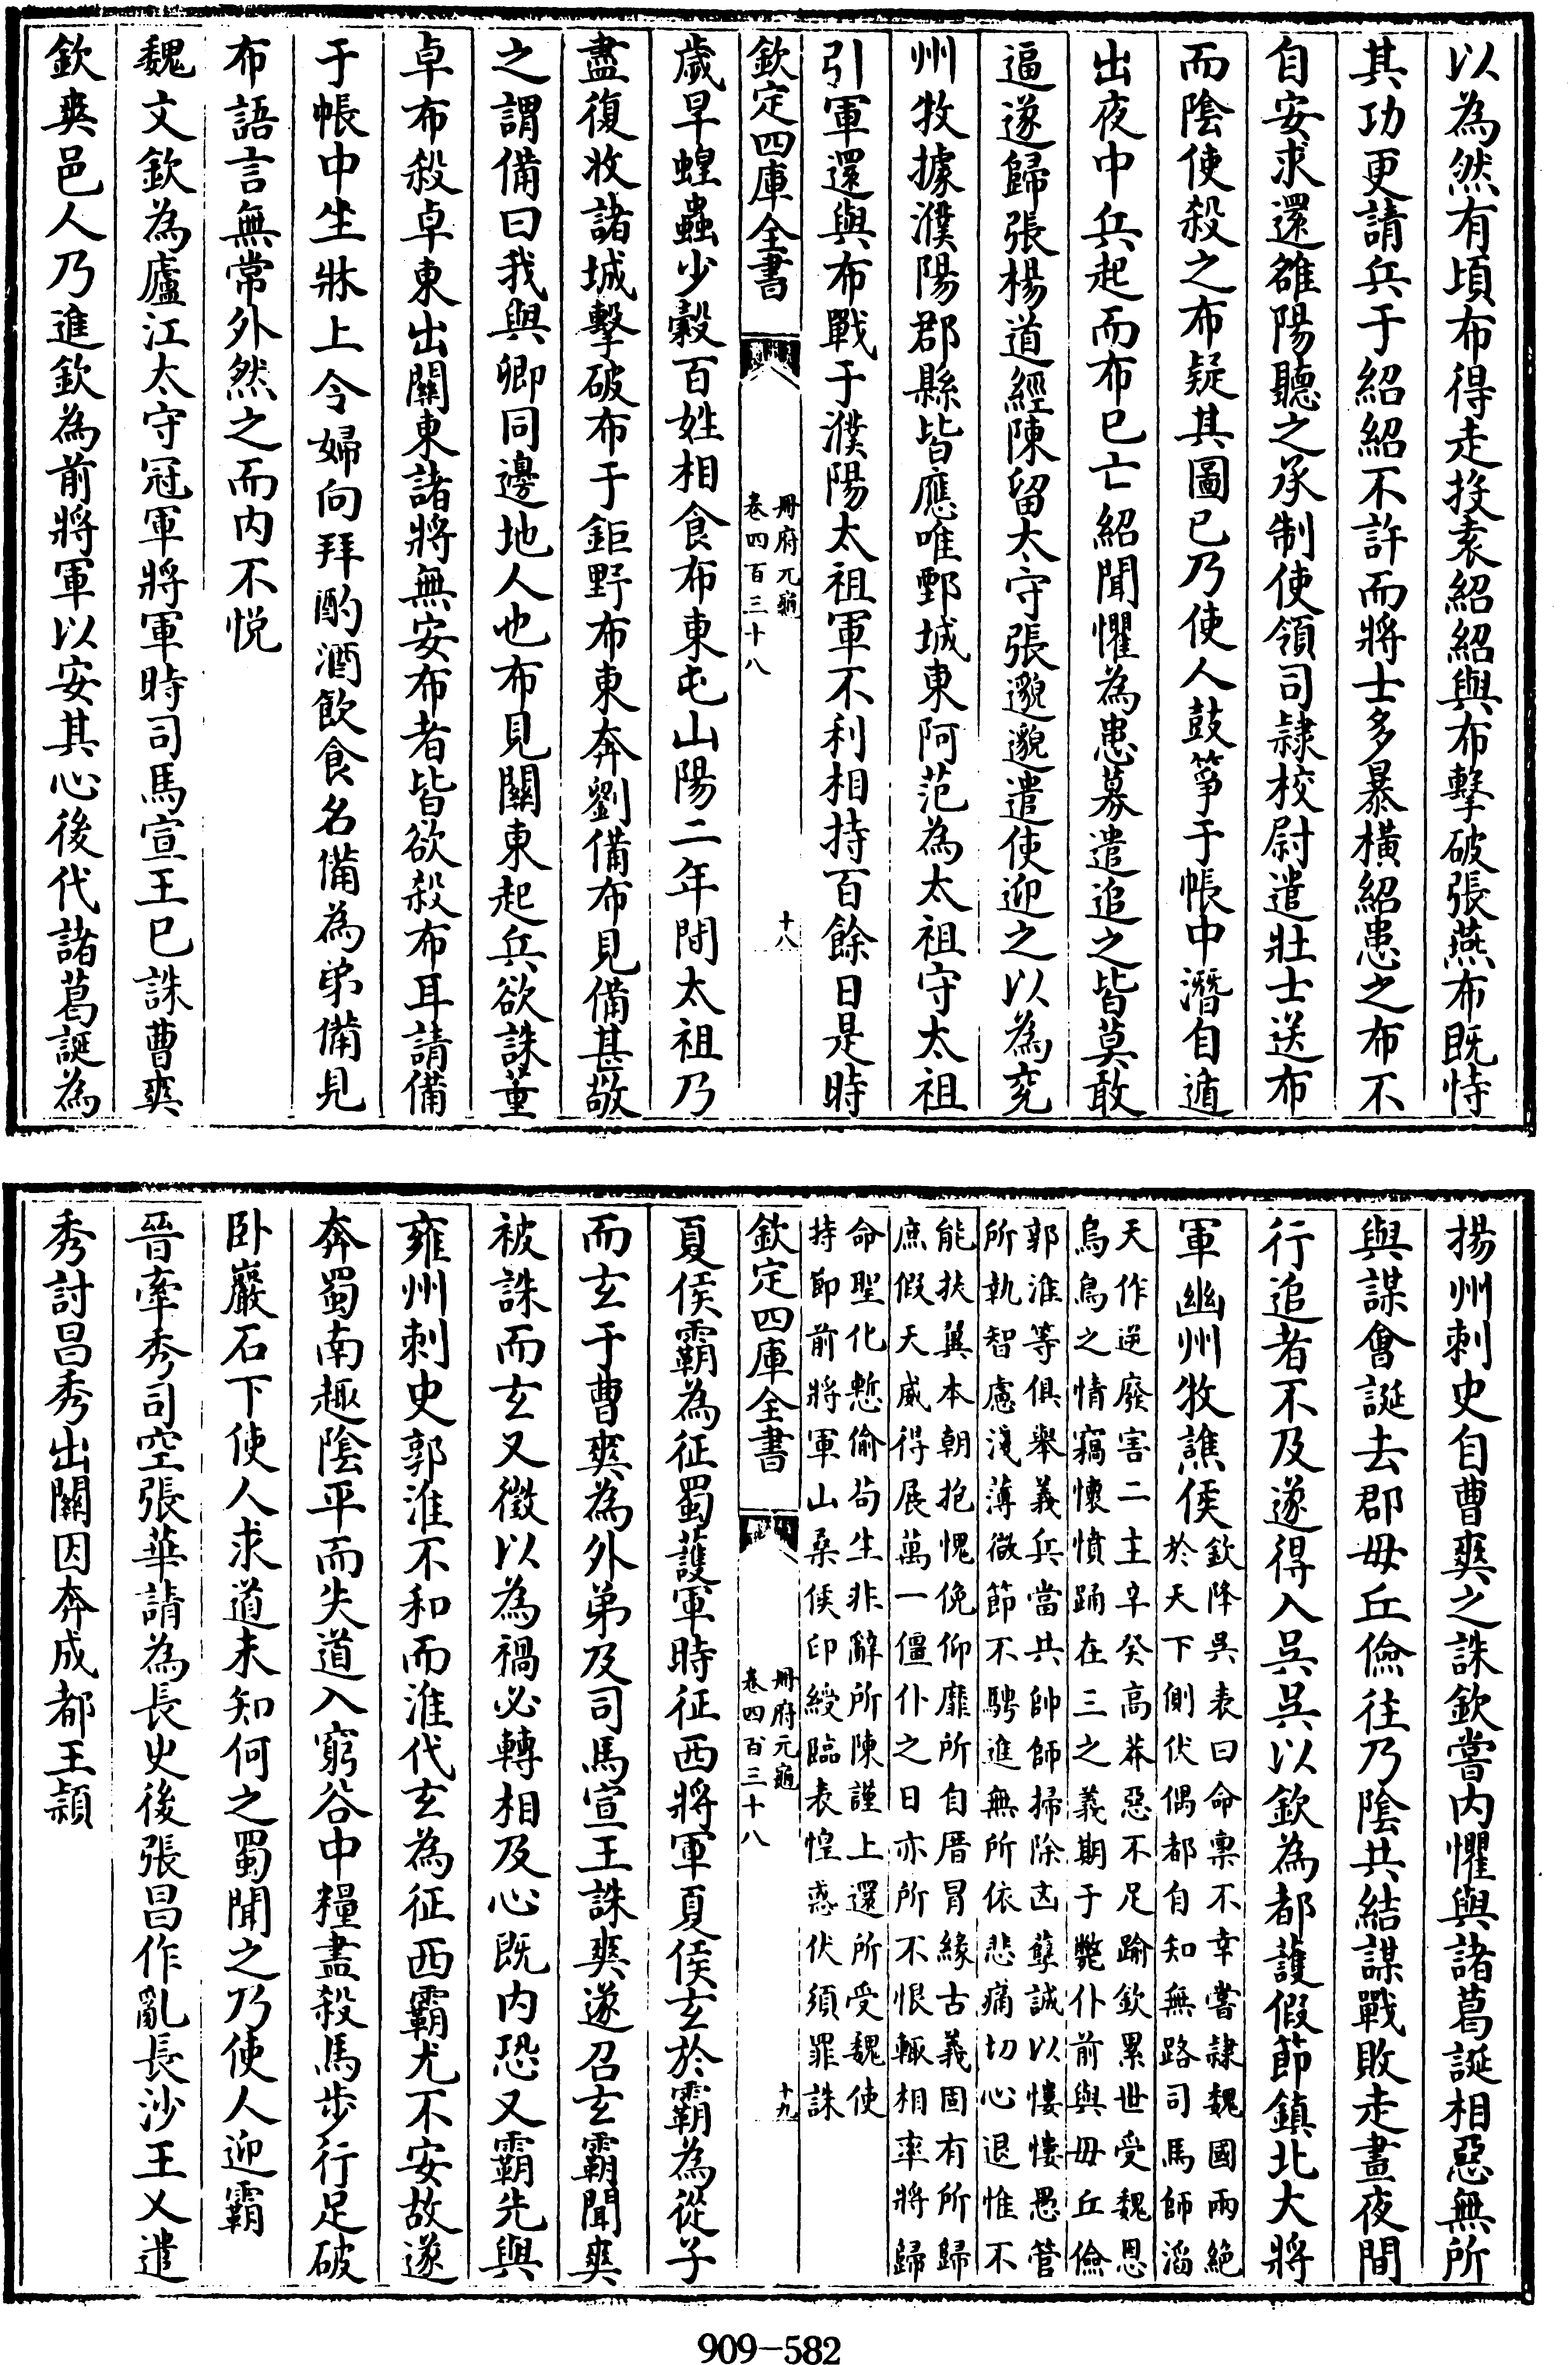 以為然有頃布得走投袁紹紹與布擊破張燕布既恃
其功更請兵于紹紹不許而將士多暴橫紹患之布不
自安求還雒陽聽之承制使領司隸校尉遣壯士送布
而陰使殺之布疑其圖已乃使人鼓箏于帳中潛自遁
出夜中兵起而布已亡紹聞懼為患募遣追之皆莫敢
逼遂歸張楊道經陳留太守張邈邈遣使迎之以為兖
州牧據濮陽郡縣皆應唯鄄城東阿范為太祖守太祖
引軍還與布戰于濮陽太祖軍不利相持百餘日是時
欽定四庫全書
冊府元龜
卷四百三十八
十八
歲旱蝗蟲少穀百姓相食布東屯山陽二年間太祖乃
盡復收諸城擊破布于鉅野布東奔劉備布見備甚敬
之謂備曰我與卿同邊地人也布見關東起兵欲誅董
卓布殺卓東出關東諸將無安布者皆欲殺布耳請備
于帳中坐牀上令婦向拜酌酒飲食名備為弟備見
布語言無常外然之而内不悦
魏文欽為廬江太守冠軍將軍時司馬宣王已誅曹爽
欽爽邑人乃進欽為前將軍以安其心後代諸葛誕為
揚州刺史自曹爽之誅欽嘗内懼與諸葛誕相惡無所
與謀會誕去郡毋丘儉往乃陰共結謀戰敗走晝夜間
行追者不及遂得入呉呉以欽為都護假節鎮北大將
軍幽州牧譙侯
欽降呉表曰命禀不幸嘗隷魏國兩絶
於天下側伏偶都自知無路司馬師滔
天作逆廢害二主辛癸高莽惡不足踰欽累世受魏恩
烏鳥之情竊懷憤踊在三之義期于斃仆前與毋丘儉
郭淮等俱舉義兵當共帥師掃除凶孽誠以慺慺愚管
所執智慮淺薄微節不騁進無所依悲痛切心退惟不
能扶翼本朝抱愧俛仰靡所自厝冒緣古義固有所歸
庶假天威得展萬一僵仆之日亦所不恨輒相率將歸
命聖化慙偷茍生非辭所陳謹上還所受魏使
持節前將軍山桑侯印綬臨表惶惑伏須罪誅
欽定四庫全書
冊府元龜
卷四百三十八
十九
夏侯霸為征蜀護軍時征西將軍夏侯玄於霸為從子
而玄于曹爽為外弟及司馬宣王誅爽遂召玄霸聞爽
被誅而玄又徴以為禍必轉相及心既内恐又霸先與
雍州刺史郭淮不和而淮代玄為征西霸尤不安故遂
奔蜀南趣陰平而失道入窮谷中糧盡殺馬步行足破
卧巖石下使人求道未知何之蜀聞之乃使人迎霸
晉牽秀司空張華請為長史後張昌作亂長沙王乂遣
秀討昌秀出關因奔成都王頴
909-582